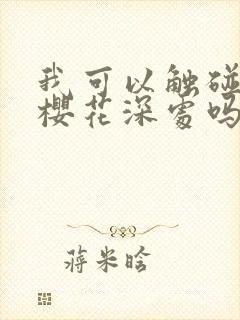 我可以触碰
樱花深处吗
蒋米晗